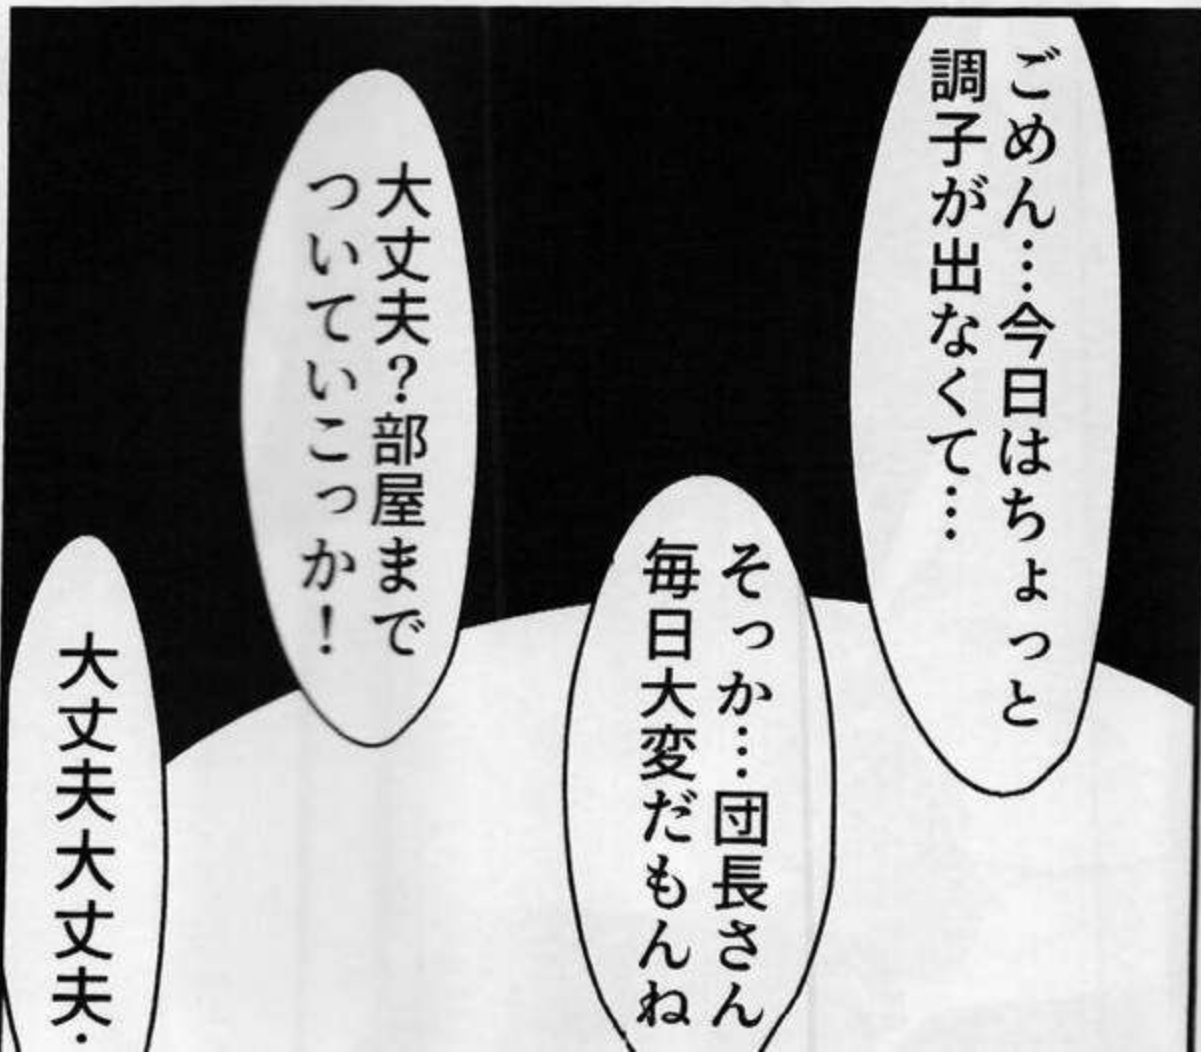 ごめん…今日はちょっと
調子が出なくて…
そっか…団長さん
毎日大変だもんね
大丈夫？部屋まで
ついていこっか！
大丈夫大丈夫・